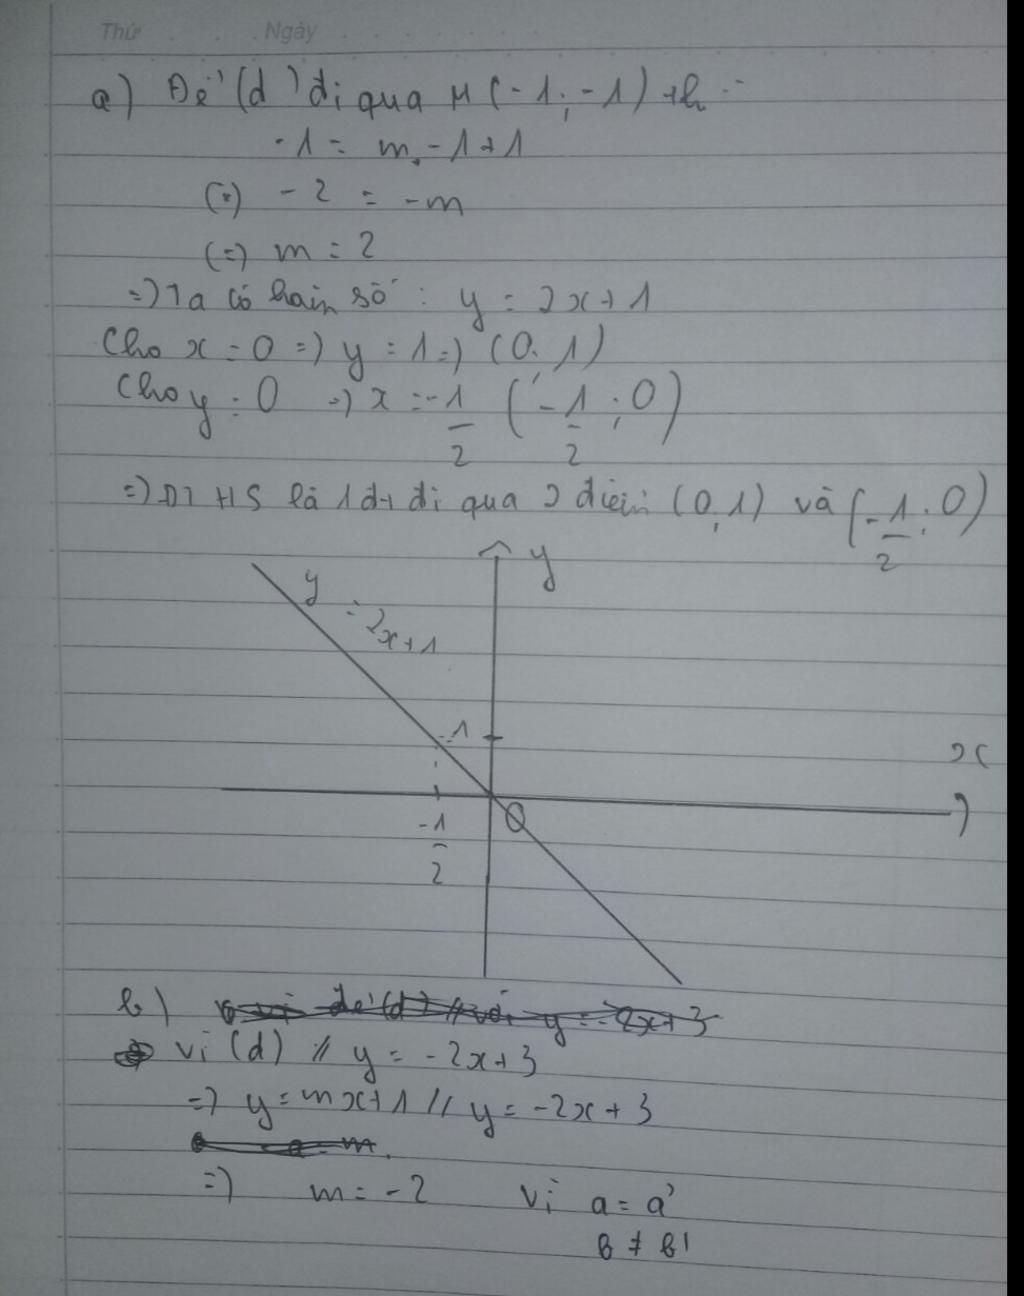 Thứ Ngày
a) Để (d) đi qua M(-1; -1) th
-1 = m.-1+1
(=) -2 = -m
(=) m = 2
=) Ta có hàm số : y = 2x+1
Cho x = 0 =) y = 1 =) (0; 1)
Cho y = 0 =) x = -1/2 (-1/2 ; 0)
=) ĐTHS là 1 đt đi qua 2 điểm (0;1) và (-1/2; 0)
y
y = 2x+1
1
x
O
-1/2
b) để (d) // với y = -2x+3
vì (d) // y = -2x+3
=) y = mx+1 // y = -2x+3
=) m = -2 vì a = a'
b ≠ b'